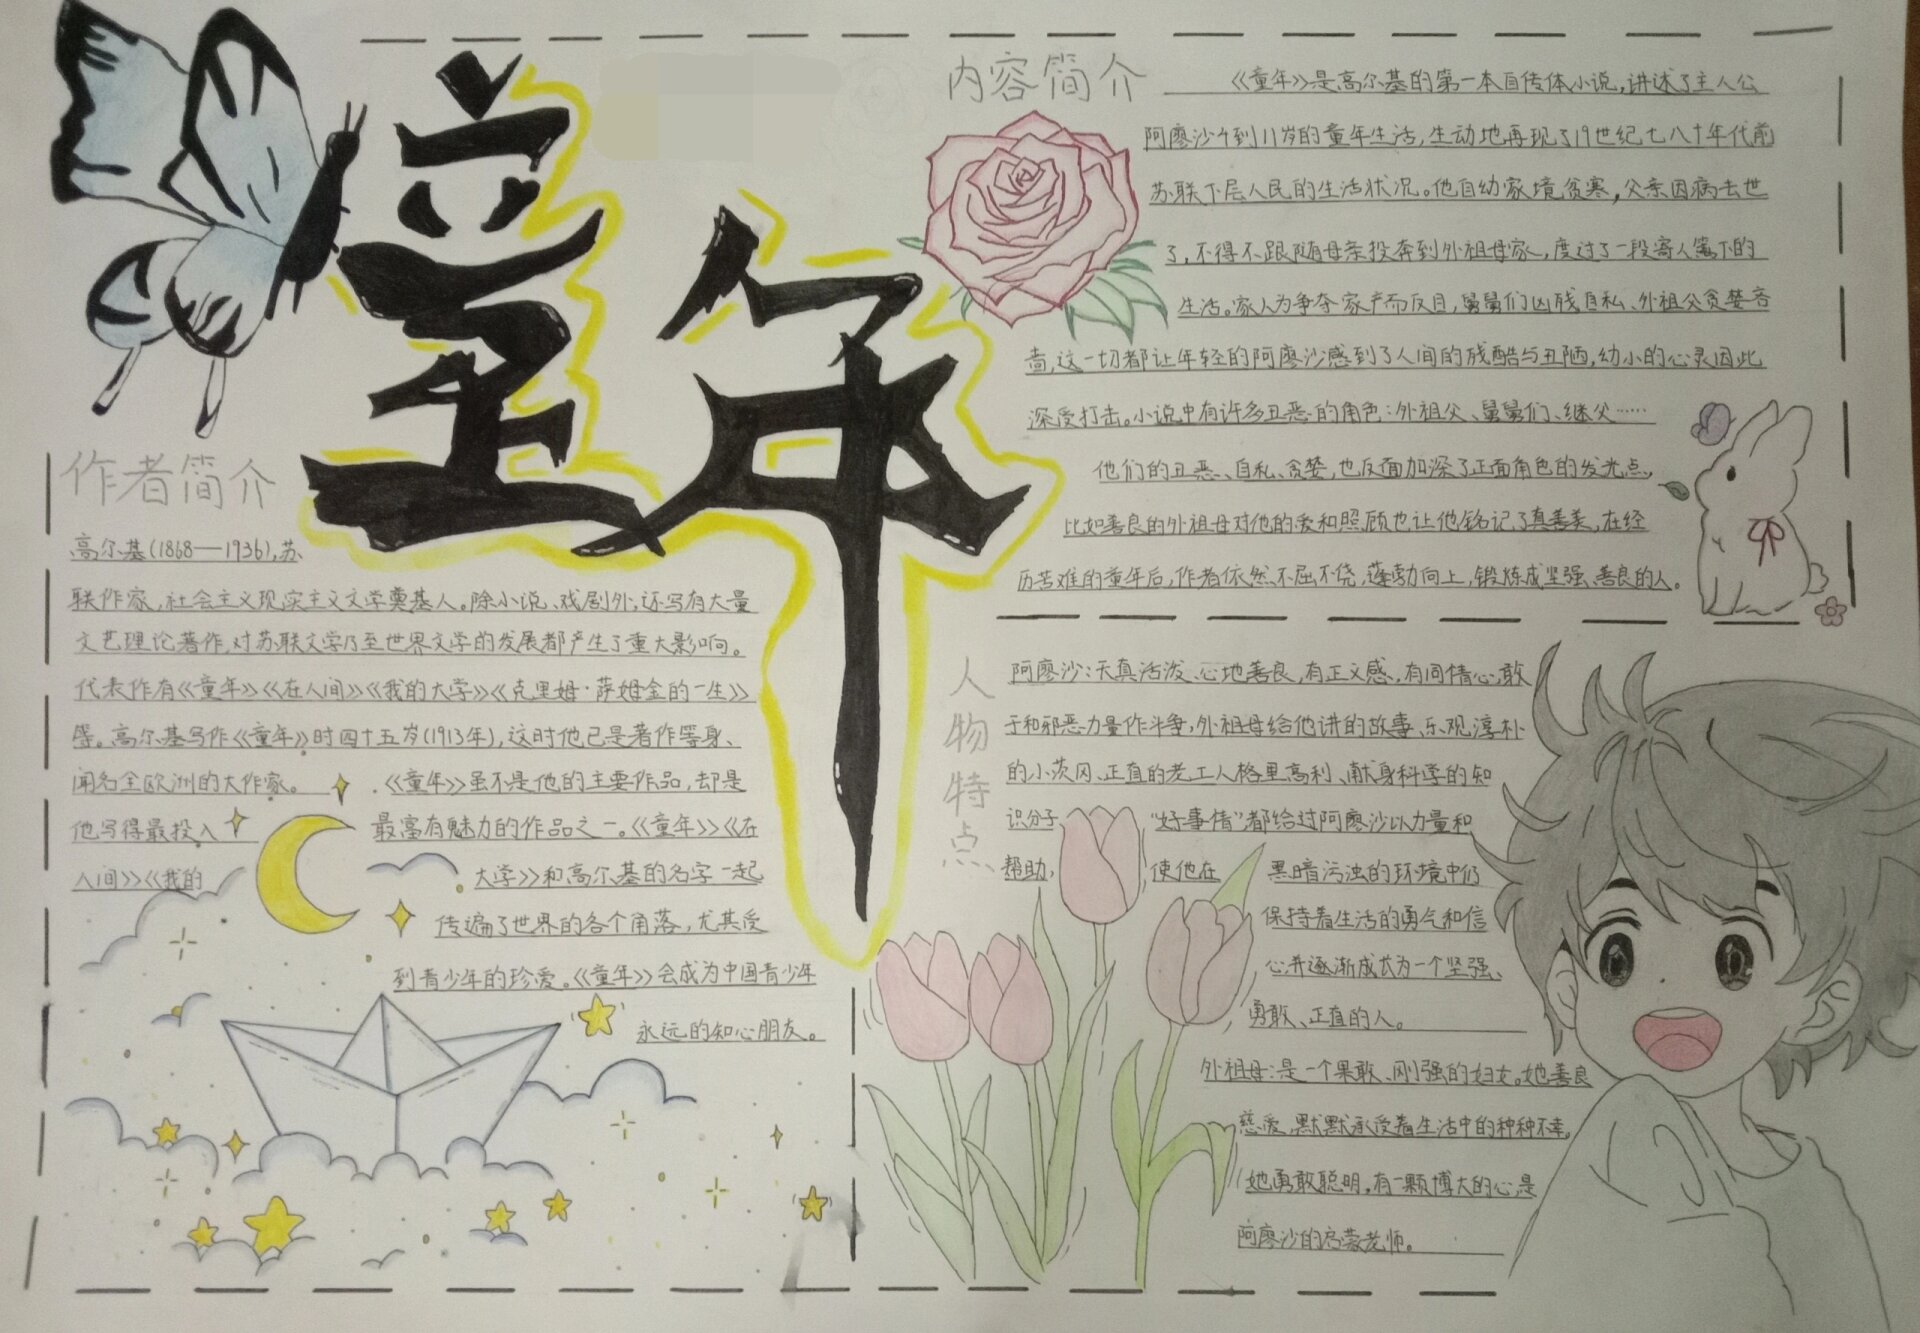 童年
作者简介
高尔基(1868—1936),苏
联作家,社会主义现实主义文学奠基人。除小说、戏剧外,还写有大量
文艺理论著作,对苏联文学乃至世界文学的发展都产生了重大影响。
代表作有《童年》《在人间》《我的大学》《克里姆·萨姆金的一生》
等。高尔基写作《童年》时四十五岁(1913年),这时他已是著作等身、
闻名全欧洲的大作家。《童年》虽不是他的主要作品,却是
他写得最投入 最富有魅力的作品之一。《童年》《在
人间》《我的 大学》和高尔基的名字一起
传遍了世界的各个角落,尤其受
到青少年的珍爱。《童年》会成为中国青少年
永远的知心朋友。
内容简介
《童年》是高尔基的第一本自传体小说,讲述了主人公
阿廖沙4到11岁的童年生活,生动地再现了19世纪七八十年代前
苏联下层人民的生活状况。他自幼家境贫寒,父亲因病去世
了,不得不跟随母亲投奔到外祖母家,度过了一段寄人篱下的
生活。家人为争夺家产而反目,舅舅们凶残自私、外祖父贪婪吝
啬,这一切都让年轻的阿廖沙感到了人间的残酷与丑陋,幼小的心灵因此
深受打击。小说中有许多丑恶的角色:外祖父、舅舅们、继父……
他们的丑恶、自私、贪婪,也反面加深了正面角色的发光点,
比如善良的外祖母对他的爱和照顾也让他铭记了真善美,在经
历苦难的童年后,作者依然不屈不饶,蓬勃向上,锻炼成坚强、善良的人。
人物特点
阿廖沙:天真活泼、心地善良,有正义感,有同情心,敢
于和邪恶力量作斗争,外祖母给他讲的故事、乐观淳朴
的小茨冈、正直的老工人格里高利、献身科学的知
识分子 "好事情"都给过阿廖沙以力量和
帮助, 使他在 黑暗污浊的环境中仍
保持着生活的勇气和信
心并逐渐成长为一个坚强、
勇敢、正直的人。
外祖母:是一个果敢、刚强的妇女。她善良
慈爱,默默承受着生活中的种种不幸,
她勇敢聪明,有一颗博大的心,是
阿廖沙的启蒙老师。